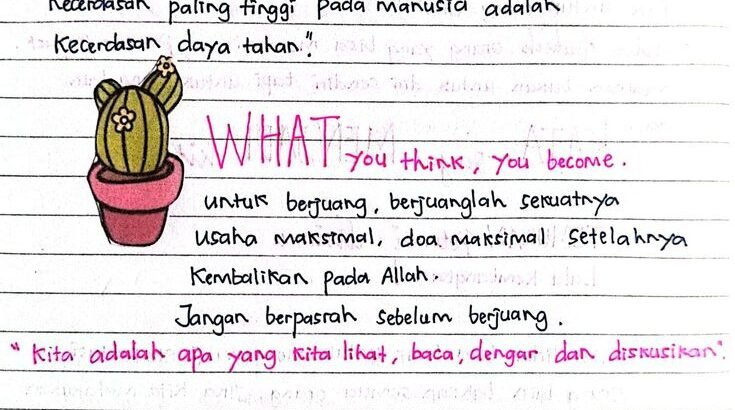 Kecerdasan paling tinggi pada manusia adalah
Kecerdasan daya tahan."
WHAT you think, you become.
untuk berjuang, berjuanglah sekuatnya
usaha maksimal, doa maksimal setelahnya
Kembalikan pada Allah.
Jangan berpasrah sebelum berjuang.
"Kita adalah apa yang kita lihat, baca, dengar dan diskusikan".